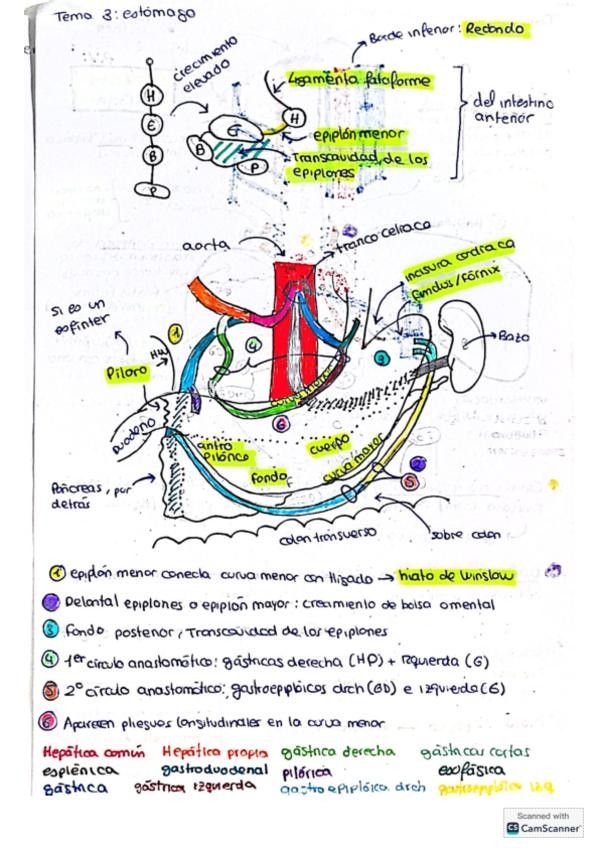 Tema 3: estómago
Borde inferior: Redondo
crecimiento elevado
Ligamento falciforme
H
E
B
P
E
H
B
P
epiplón menor
Transcavidad de los epiplones
del intestino anterior
aorta
tronco celiaco
incisura cardiaca
fundus/fórnix
Si es un esfinter
1
HW
4
3
Bazo
Píloro
Duodeno
curva menor
6
antro pilórico
cuerpo
fondo
curva mayor
2
5
Páncreas, por detrás
colon transverso
sobre colon
1 epiplón menor conecta curva menor con Hígado → hiato de Winslow
2 Delantal epiplones o epiplón mayor: crecimiento de bolsa omental
3 Fondo posterior, Transcavidad de los epiplones
4 1er círculo anastomótico: gástricas derecha (HP) + izquierda (G)
5 2º círculo anastomótico: gastroepiploicos drch (GD) e izquierda (E)
6 Aparecen pliegues longitudinales en la curva menor
Hepática común Hepática propia gástrica derecha gástricas cortas
esplénica gastroduodenal pilórica esofásica
gástrica gástrica izquierda gastroepiplóica drch gastroepiplóica izq
Scanned with
CS CamScanner